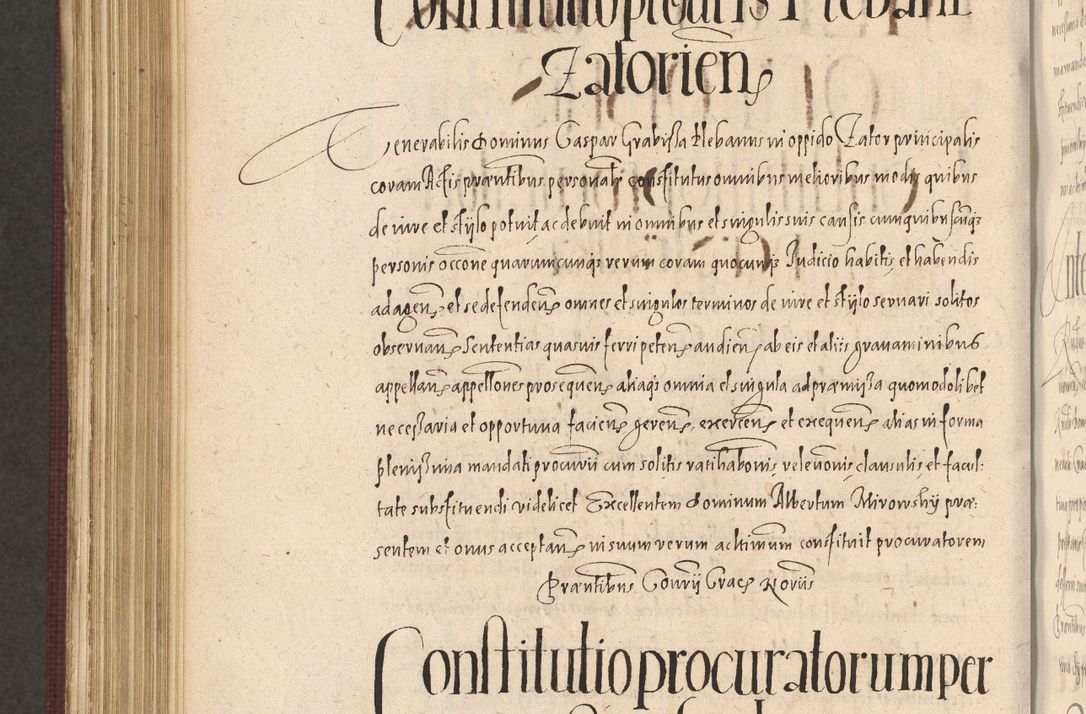 Constitutio procuris Plebani
Zatorien
Venerabilis Dominus Caspar Grabissa Plebanus in oppido Zator principalis
coram Actis præntibus personalr constitutus omnibus melioribus modis quibus
de iure et stÿlo potuit ac debuit in omnibus et singulis suis causis cum quibuscunqz
personis occone quarumcunqz rerum coram quocunqz Iudicio habitis et habendis
ad agen et se defenden omnes et singulos terminos de iure et stÿlo servari solitos
observan Sententias quasuis ferri peten audien ab eis et aliis gravaminibus
appellan appellones prosequen aliaqz omnia et singula ad præmissa quomodolibet
necessaria et opportuna facien geren exercen et exequen alias in forma
plenissima mandati procurii cum solitis ratihabonis relevonis clausulis et facul:
tate substituendi videlicet Excellentem Dominum Albertum Mirowskÿ præ:
sentem et onus acceptan in suum verum ac ltimum constituit procuratorem
Præntibus Conrÿ Grace Noriis
Constitutio procuratorum per